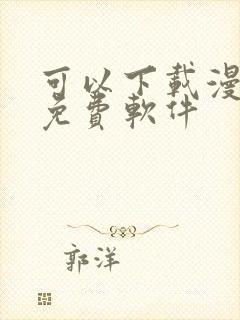 可以下載漫
免費軟件
郭洋